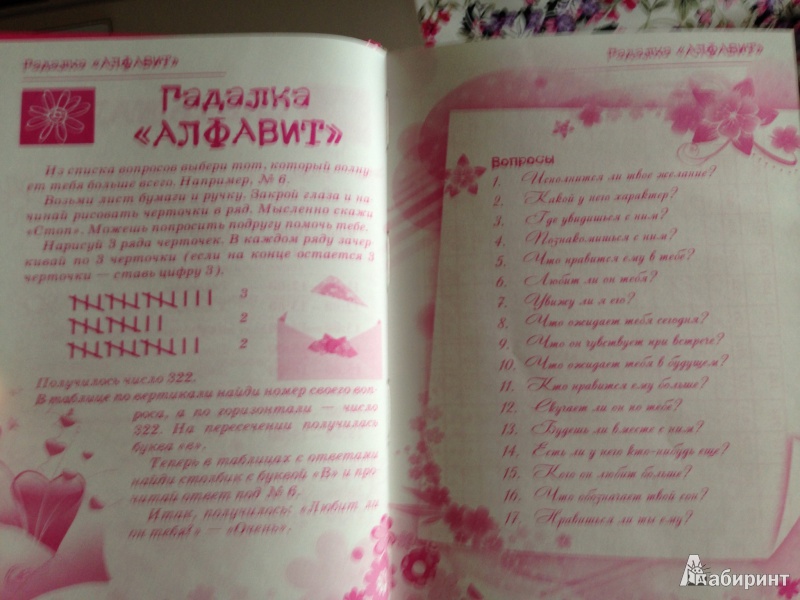 Гадалка «АЛФАВИТ»
Гадалка
«АЛФАВИТ»
Из списка вопросов выбери тот, который волну-
ет тебя больше всего. Например, № 6.
Возьми лист бумаги и ручку. Закрой глаза и на-
чинай рисовать черточки в ряд. Мысленно скажи
«Стоп». Можешь попросить подругу помочь тебе.
Нарисуй 3 ряда черточек. В каждом ряду зачер-
кивай по 3 черточки (если на конце остается 3
черточки — ставь цифру 3).
3
2
2
Получилось число 322.
В таблице по вертикали найди номер своего воп-
роса, а по горизонтали — число
322. На пересечении получилась
буква «в».
Теперь в таблицах с ответами
найди столбик с буквой «В» и про-
читай ответ под № 6.
Итак, получилось: «Любит ли
он тебя?» — «Очень».
Гадалка «АЛФАВИТ»
Вопросы
1. Исполнится ли твое желание?
2. Какой у него характер?
3. Где увидишься с ним?
4. Познакомишься с ним?
5. Что нравится ему в тебе?
6. Любит ли он тебя?
7. Увижу ли я его?
8. Что ожидает тебя сегодня?
9. Что он чувствует при встрече?
10. Что ожидает тебя в будущем?
11. Кто нравится ему больше?
12. Скучает ли он по тебе?
13. Будешь ли вместе с ним?
14. Есть ли у него кто-нибудь еще?
15. Кого он любит больше?
16. Что обозначает твой сон?
17. Нравишься ли ты ему?
Лабиринт